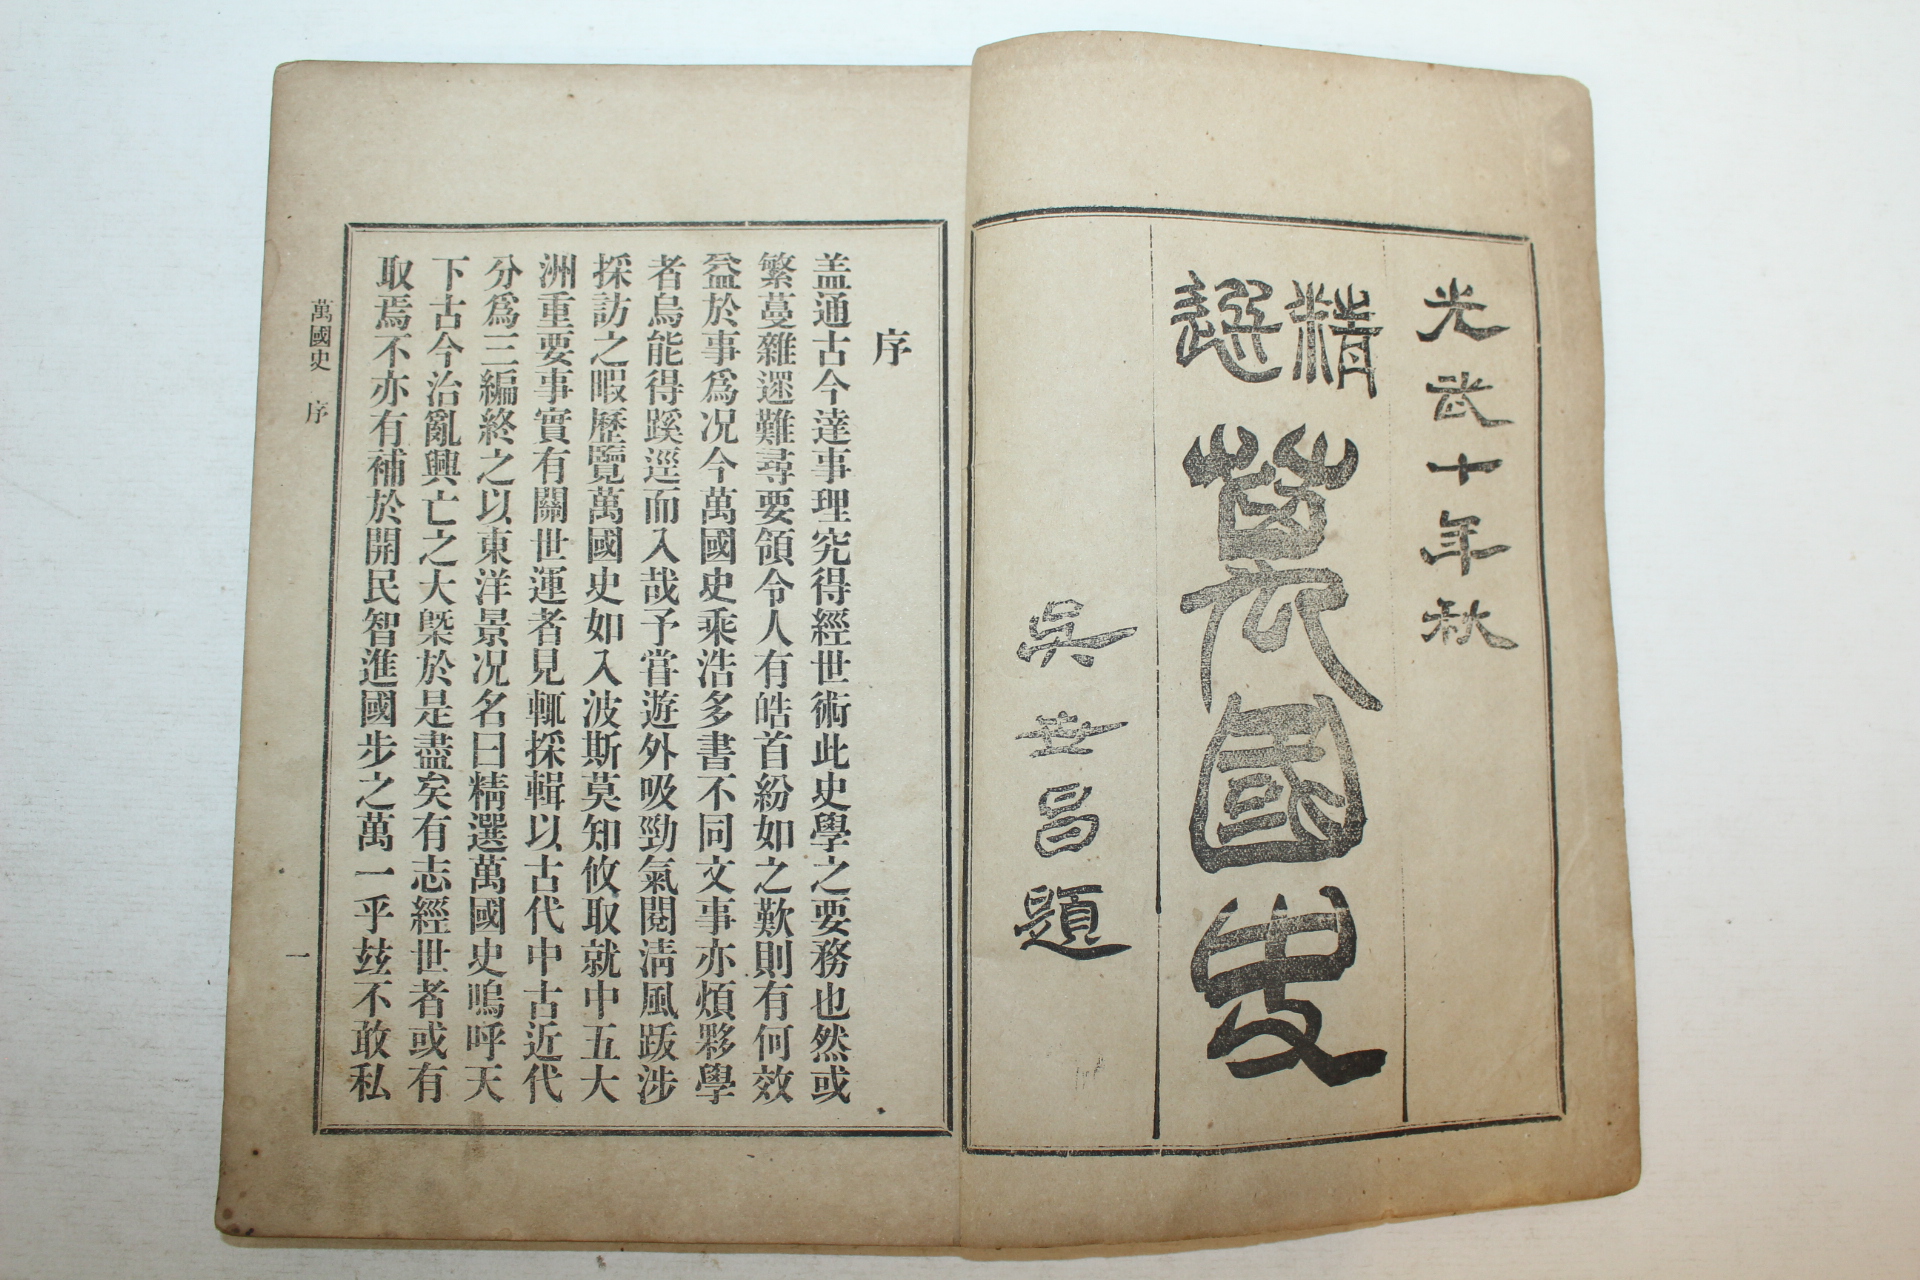 光武十年秋
精選
萬國史
吳世昌題
序
盖通古今達事理究得經世術此史學之要務也然或
繁蔓雜遝難尋要領令人有皓首紛如之歎則有何效
益於事爲况今萬國史乘浩多書不同文事亦煩夥學
者烏能得蹊逕而入哉予甞遊外吸勁氣閱淸風跋涉
採訪之暇歷覽萬國史如入波斯莫知攸取就中五大
洲重要事實有關世運者見輒採輯以古代中古近代
分爲三編終之以東洋景况名曰精選萬國史嗚呼天
下古今治亂興亡之大槩於是盡矣有志經世者或有
取焉不亦有補於開民智進國步之萬一乎玆不敢私
萬國史 序 一